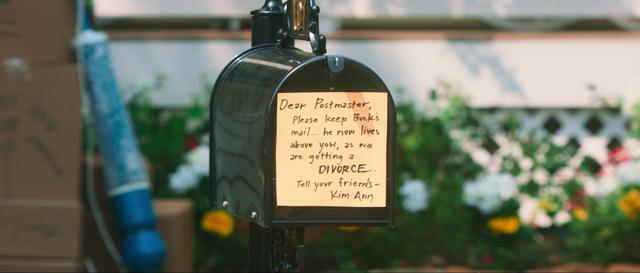 Dear Postmaster,
Please keep Buck's
mail... he now lives
above you, as we
are getting a
DIVORCE..
Tell your friends-
Kim Ann